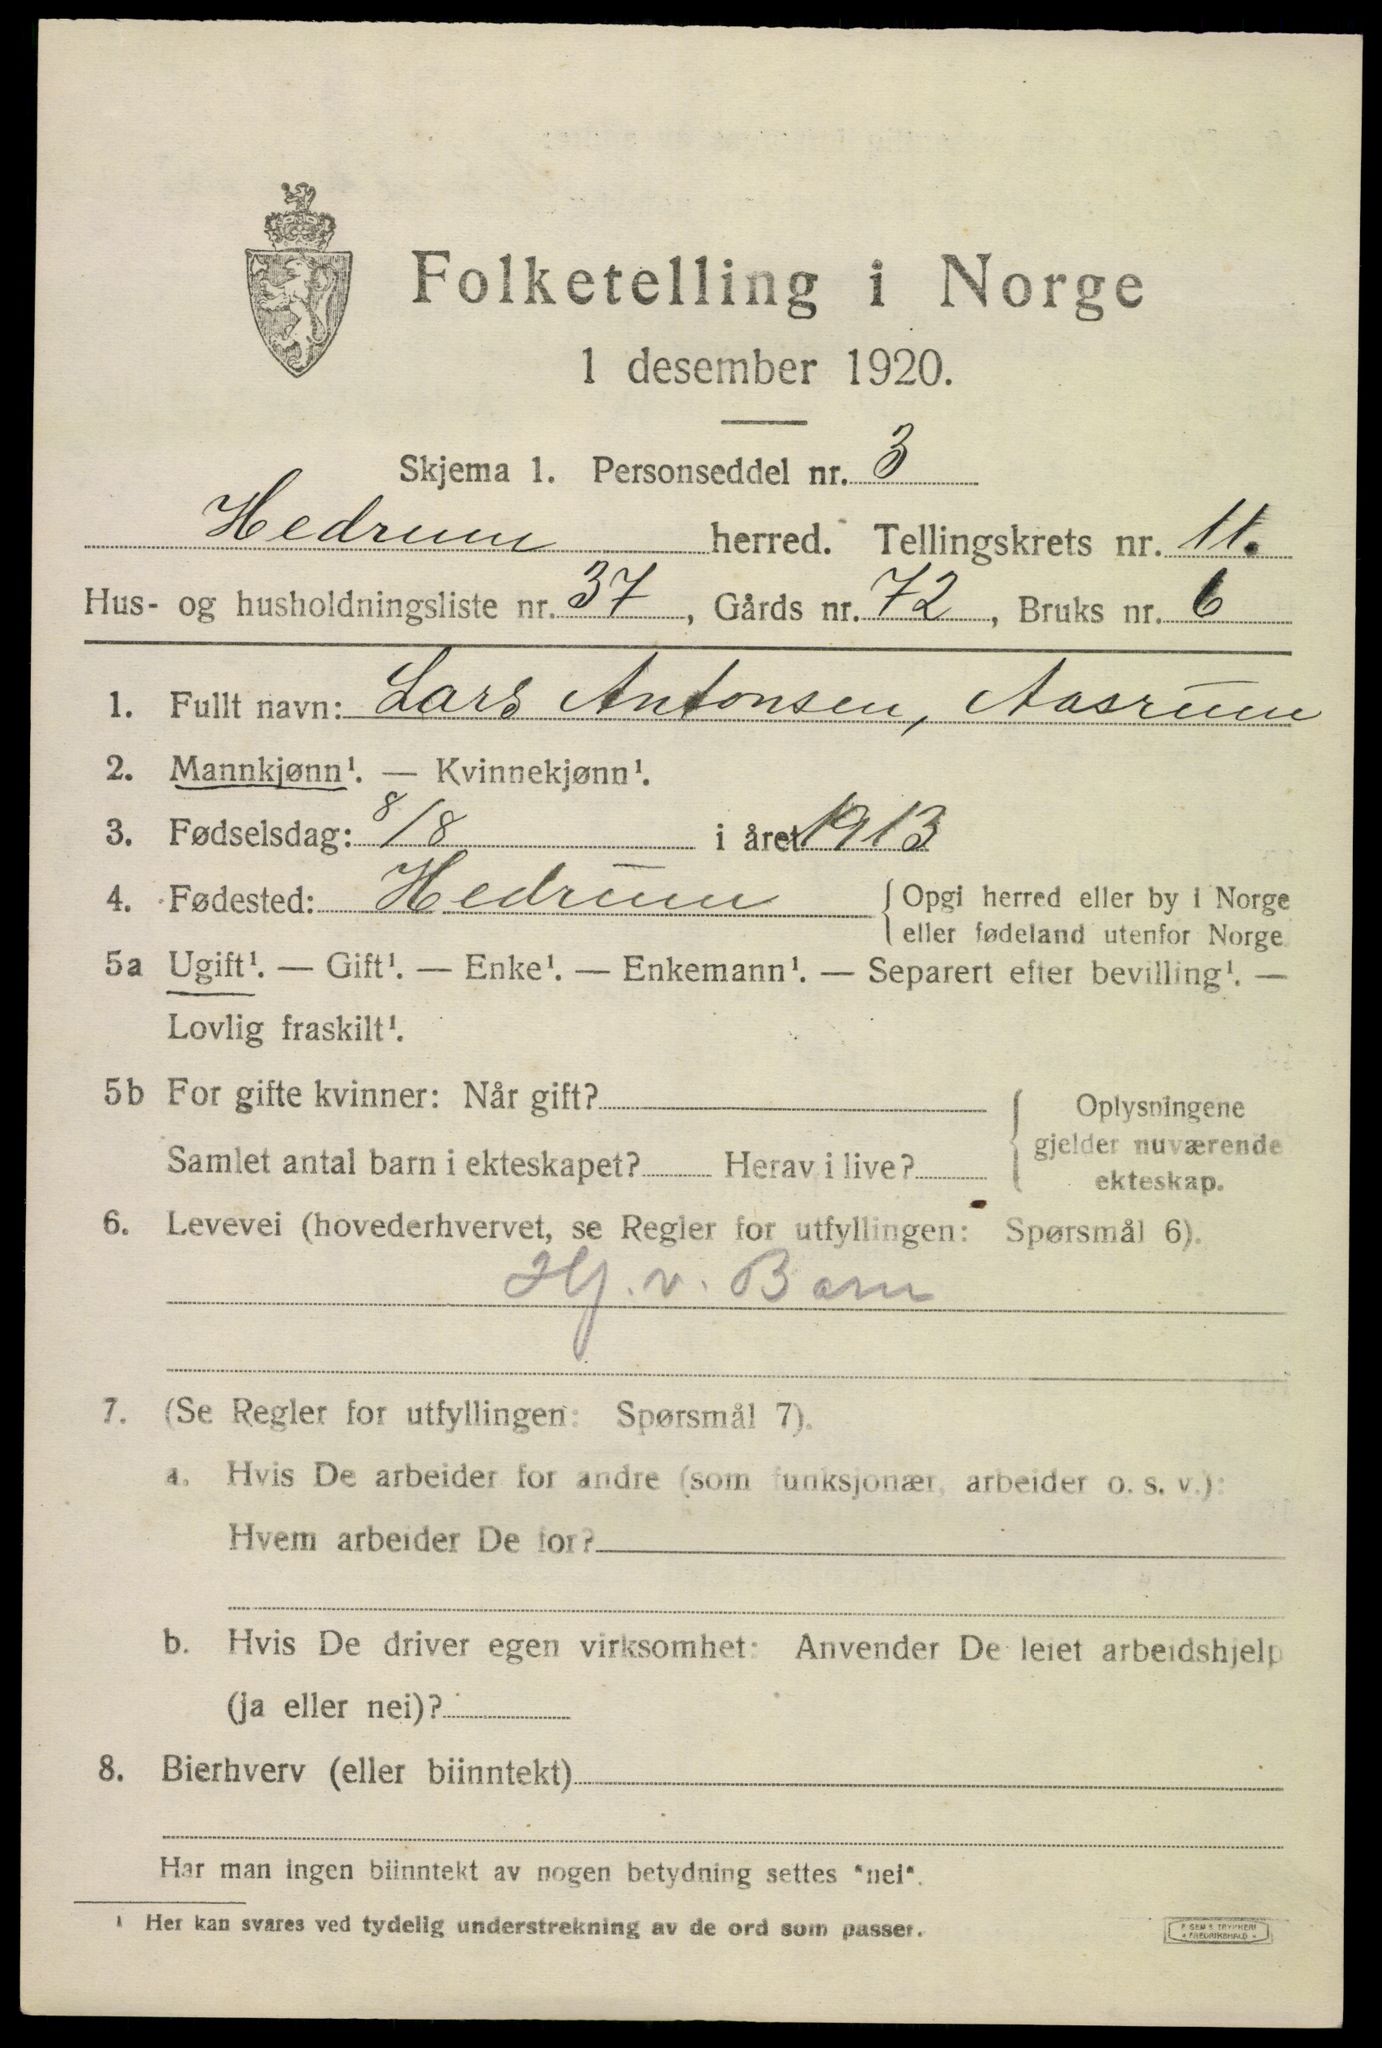 Folketelling i Norge
1 desember 1920.
Skjema 1. Personseddel nr. 3
Hedrum herred. Tellingskrets nr. 11.
Hus- og husholdningsliste nr. 37, Gårds nr. 72, Bruks nr. 6
1. Fullt navn: Lars Antonsen, Aasrum
2. Mannkjønn¹. — Kvinnekjønn¹.
3. Fødselsdag: 8/8 i året 1913
4. Fødested: Hedrum { Opgi herred eller by i Norge
eller fødeland utenfor Norge
5a Ugift¹. — Gift¹. — Enke¹. — Enkemann¹. — Separert efter bevilling¹. —
Lovlig fraskilt¹.
5b For gifte kvinner: Når gift?
Samlet antal barn i ekteskapet? Herav i live?
{ Oplysningene
gjelder nuværende
ekteskap.
6. Levevei (hovederhvervet, se Regler for utfyllingen: Spørsmål 6).
Hj. v. Barn
7. (Se Regler for utfyllingen: Spørsmål 7).
a. Hvis De arbeider for andre (som funksjonær, arbeider o. s. v.):
Hvem arbeider De for?
b. Hvis De driver egen virksomhet: Anvender De leiet arbeidshjelp
(ja eller nei)?
8. Bierhverv (eller biinntekt)
Har man ingen biinntekt av nogen betydning settes "nei".
¹ Her kan svares ved tydelig understrekning av de ord som passer.
E SEM S TRYKKERI
FREDRIKSHALD